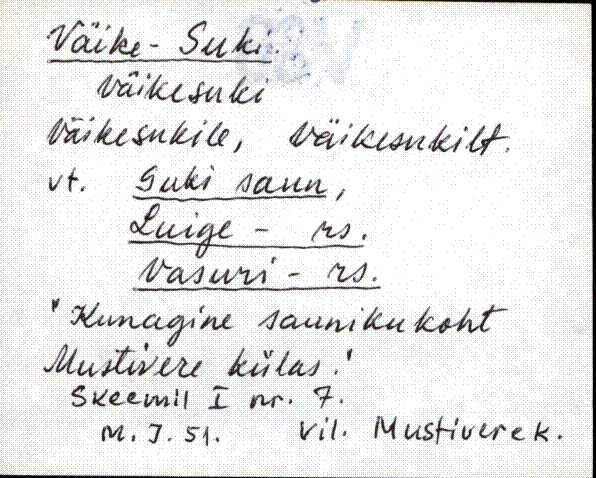 Väike-Suki
Väikesuki
Väikesukile, Väikesukilt.
vt. Suki saun,
Luige - rs.
Vasuri - rs.
"Kunagine saunikukoht
Mustivere külas."
Skeemil I nr. 7.
M. J. 51. Vil. Mustivere k.